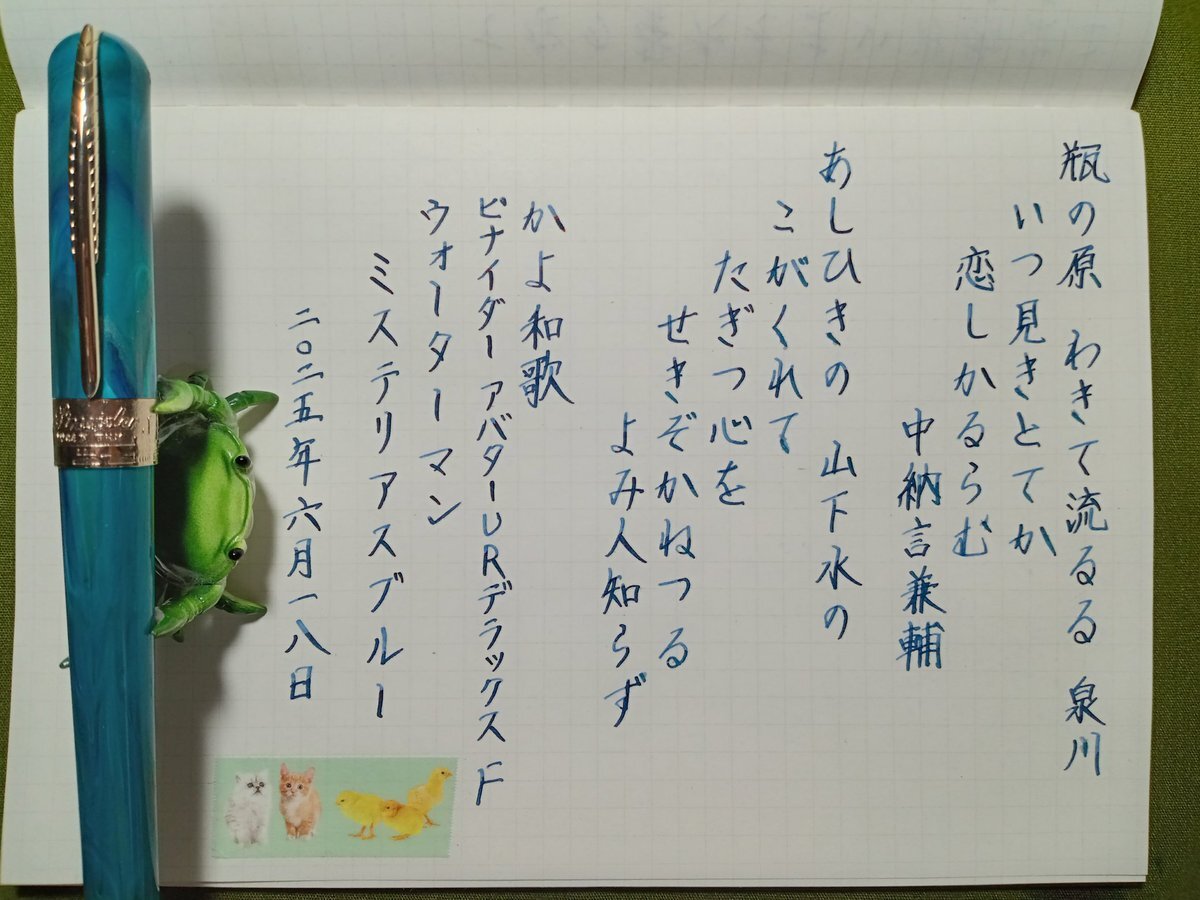 瓶の原 わきて流るる 泉川
いつ見きとてか
恋しかるらむ
中納言兼輔
あしひきの 山下水の
こがくれて
たぎつ心を
せきぞかねつる
よみ人知らず
かよ和歌
ピナイダー アバターURデラックス F
ウォーターマン
ミステリアスブルー
二〇二五年六月一八日